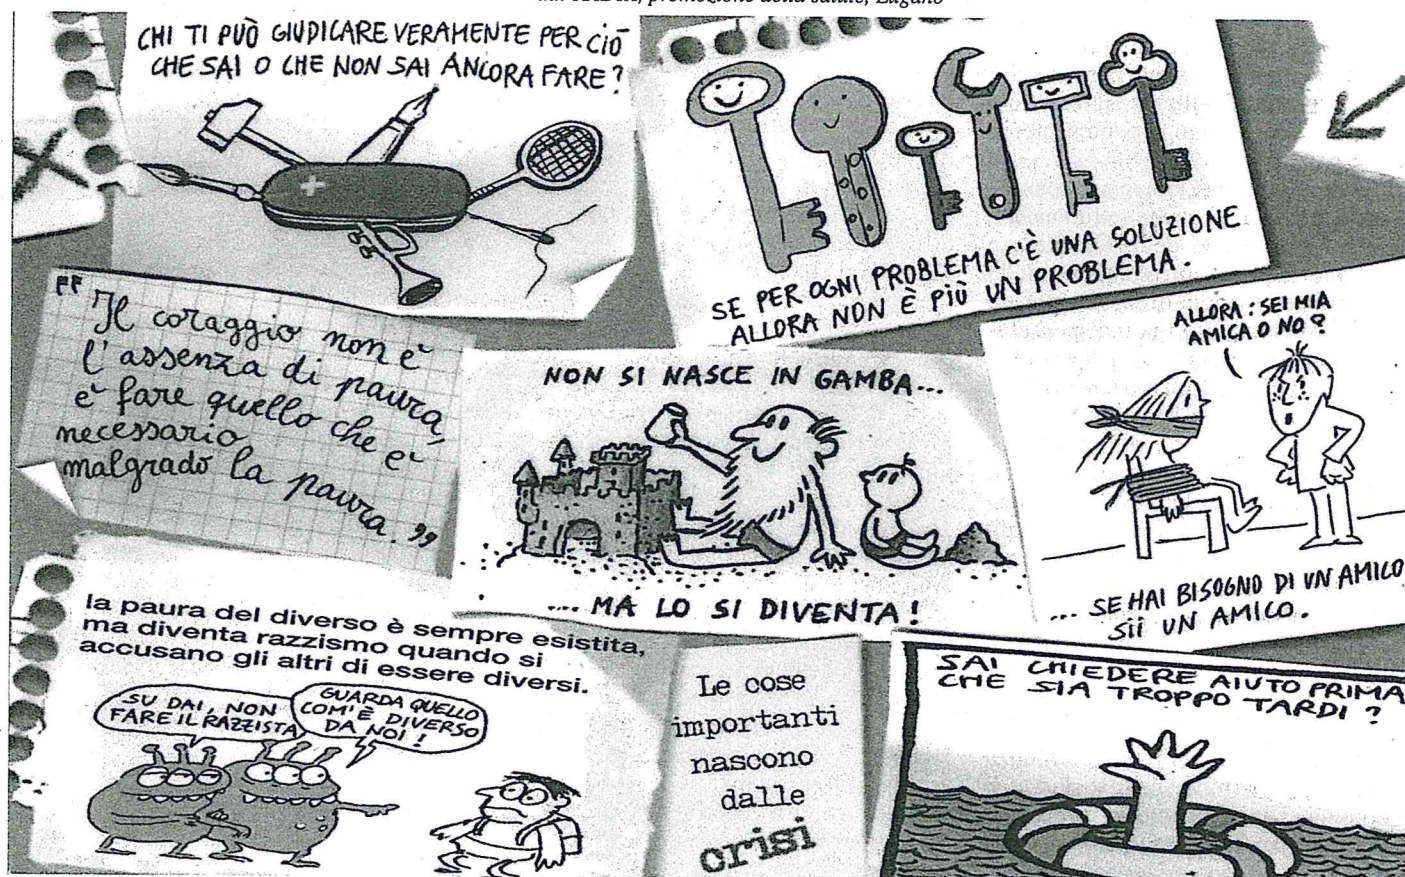 promozione della salute, Lugano
CHI TI PUÒ GIUDICARE VERAMENTE PER CIÒ
CHE SAI O CHE NON SAI ANCORA FARE?
SE PER OGNI PROBLEMA C'È UNA SOLUZIONE
ALLORA NON È PIÙ UN PROBLEMA.
"Il coraggio non è
l'assenza di paura,
è fare quello che è
necessario
malgrado la paura."
NON SI NASCE IN GAMBA...
.... MA LO SI DIVENTA!
ALLORA: SEI MIA
AMICA O NO?
... SE HAI BISOGNO DI UN AMICO
SII UN AMICO.
la paura del diverso è sempre esistita,
ma diventa razzismo quando si
accusano gli altri di essere diversi.
SU DAI, NON
FARE IL RAZZISTA
GUARDA QUELLO
COM'È DIVERSO
DA NOI!
Le cose
importanti
nascono
dalle
crisi
SAI CHIEDERE AIUTO PRIMA
CHE SIA TROPPO TARDI?